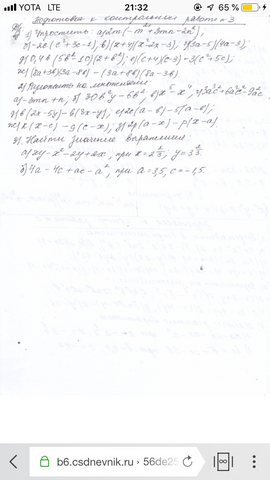 YOTA LTE 21:32 65 %
Подготовка к контрольной работе № 3
1) Упростить: а) 2m(-m²+3mn-2n²),
б) -2c(c²+3c-1) в) (x+4)(x²-2x-3), г) (3a-5)(4a-2),
д) 0,4b(5b²-10)(x+b²) е) (c+4)(c-3)-3(c²+5c),
ж) (2a+3b)(3a-8b) - (3a+8b)(8a-3b)
2) Разложить на множители:
а) -3mn+n, б) 30b³y-6b², в) x⁵-x⁴, г) 3a²c+6a²c²-9ac²
д) 4b(2x-5y)-6(3x-y), е) 2x(a-b)-5(a-b),
ж) x(x-c)-9(c-x), з) 2p(a-x)-p(x-a)
3) Найти значение выражения:
а) xy-x²-2y+2x, при x=2⅔; y=3⅔
б) 4a-4c+ac-a², при a=3,5, c=-1,5
b6.csdnevnik.ru › 56de25